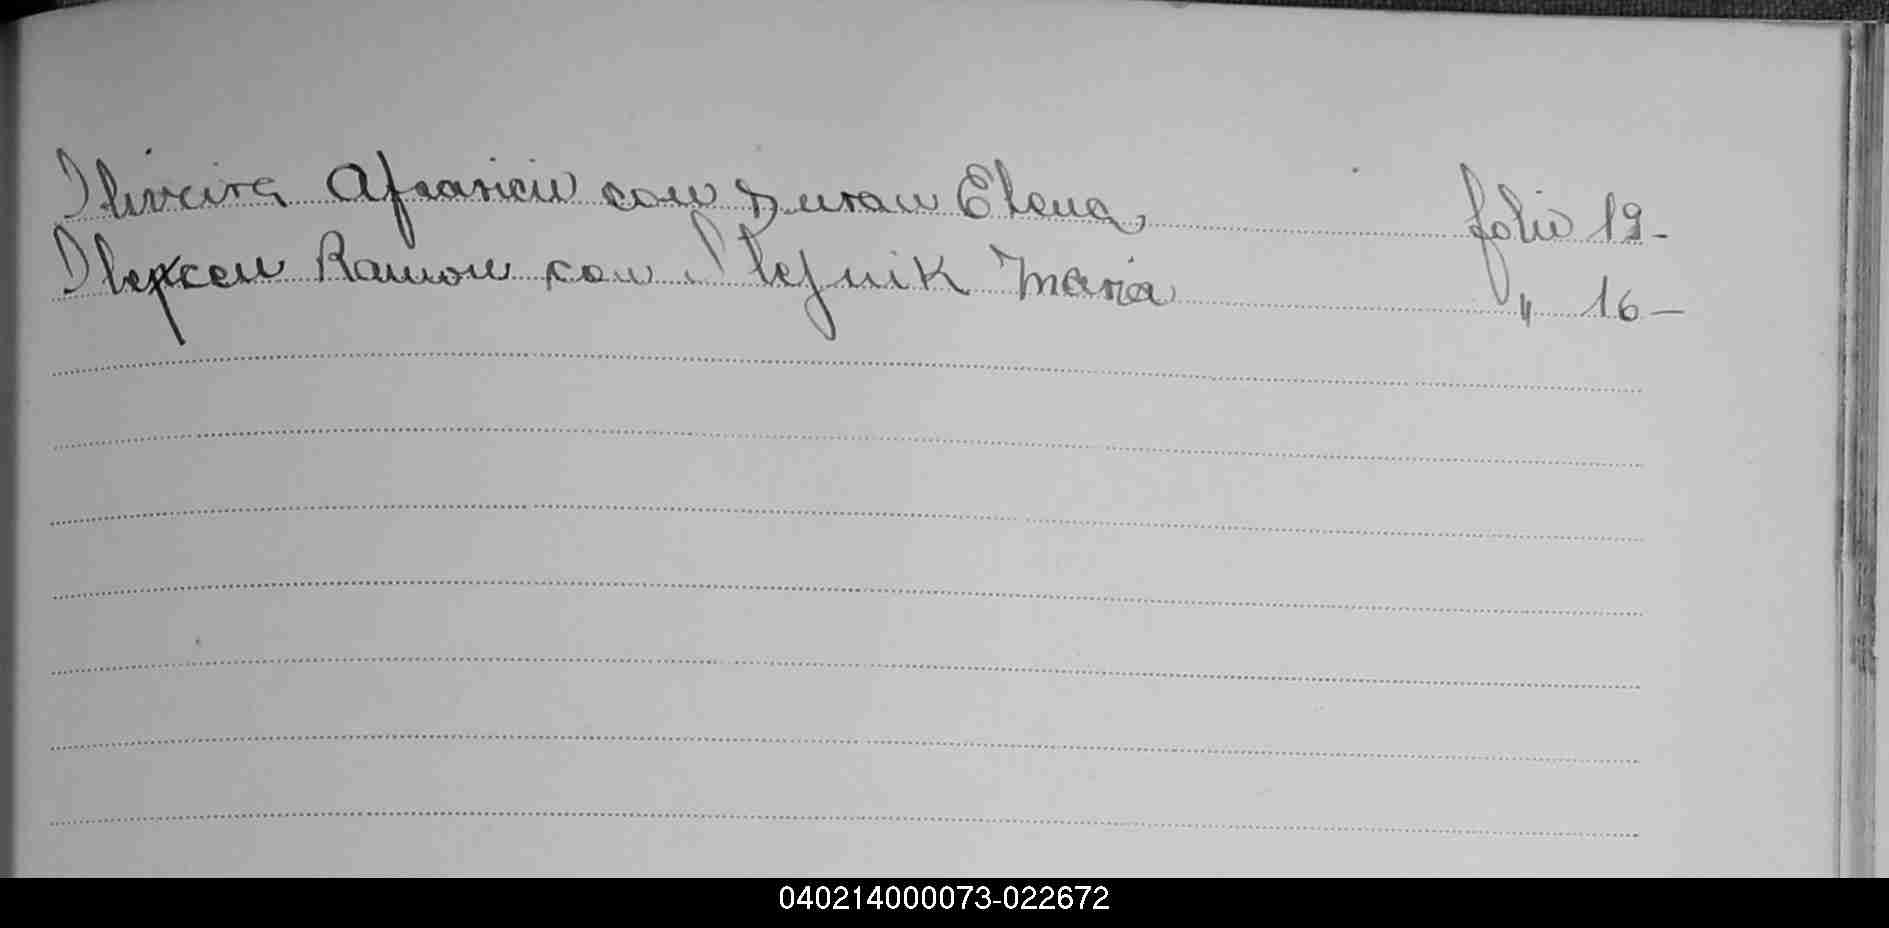 Oliveira Afranicio con Duran Elena, folio 19-
Olexcen Ramon con Olejnik Maria " 16-
040214000073-022672